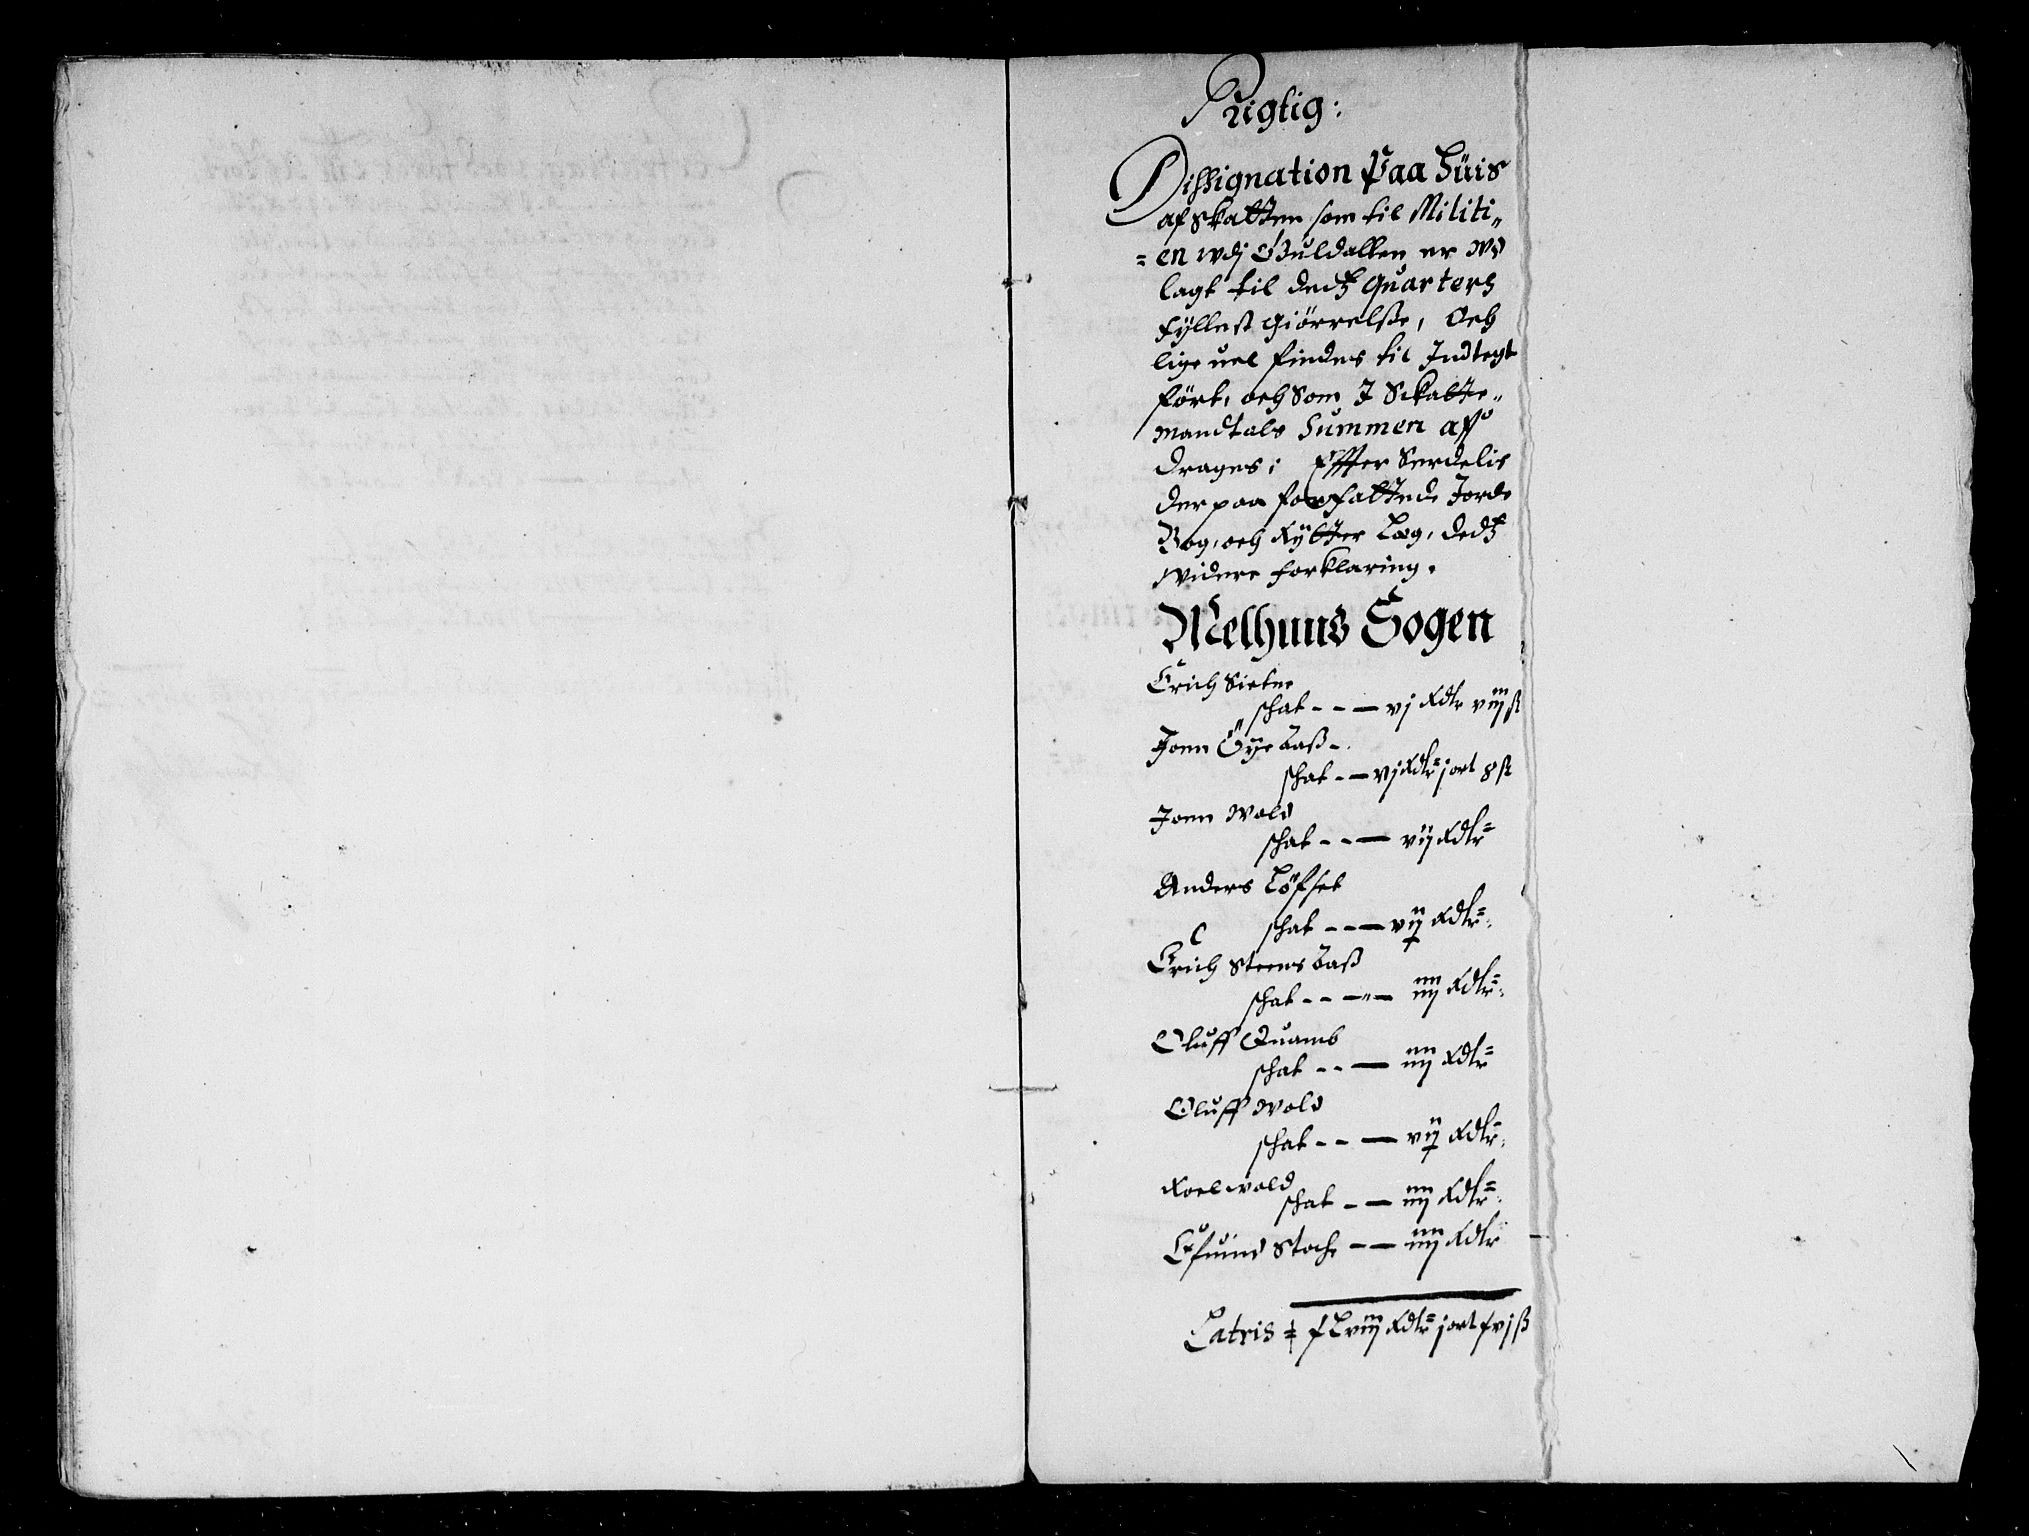 Rigtig:
Dissignation Paa Huis
af Skatten som til Militi„
=en wdj Guldallen er wd
lagt til dedtz Quarters
fyllest Giörrelsse, Och
lige uel findes til Indtegt
fört, och Som I Skatte„
mandtals Summen aff
drages; Effter Serdelis
der paa forfattede Jorde
Bog, och Rytter Læg, dedtz
widere forklaring.
Melhuus Sogen
Erich Sletne
schat - - — vj Rdlr viij ß
Joen Öye Laß -
schat - — vj Rdlr j ort 8 ß
Joen Wold
schat - - — vij Rdlr
Anders Löfset
schat - - — vij Rdlr
Erich Steens Laß
schat - - — - — iiij Rdlr
Oluff Quamb
schat - - — iiij Rdlr
Oluff Wold
schat - - — vij Rdlr
Roel Wold
schat - — iiij Rdlr
Esuind Stoche - — iiij Rdlr
Latris Lviij Rdlr j ort xvj ß